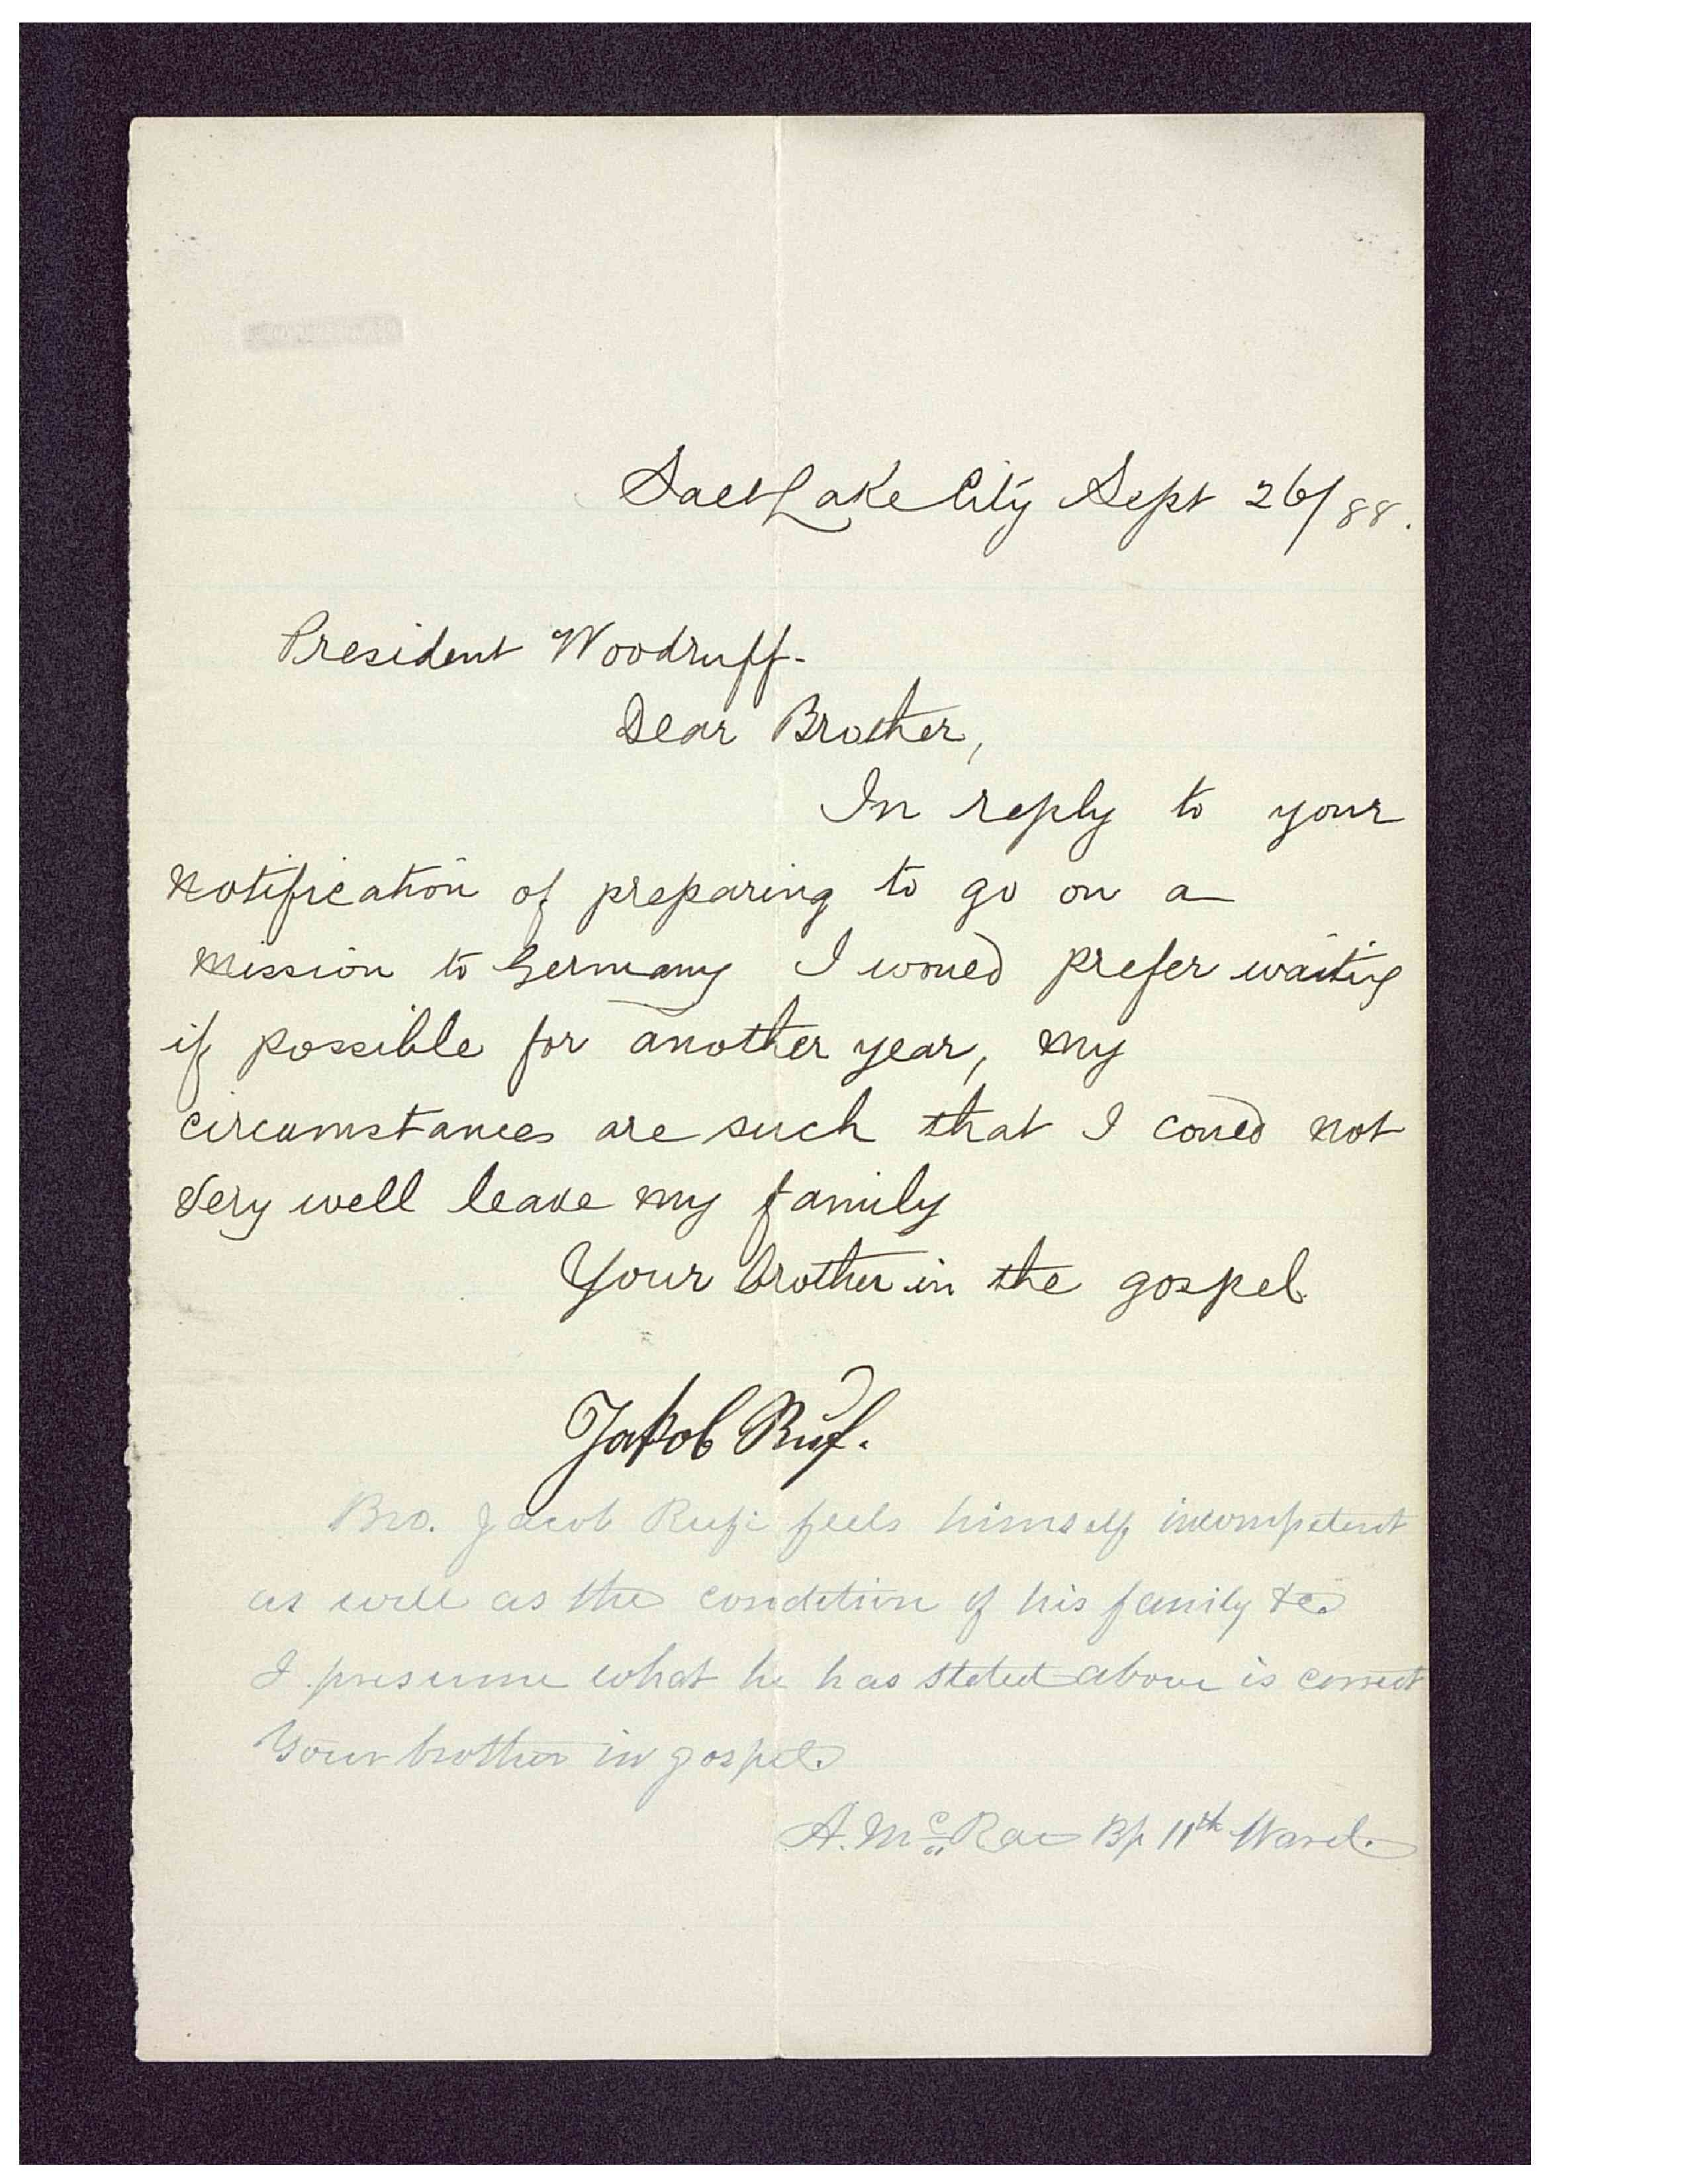 Salt Lake City Sept 26/88.
President Woodruff-
Dear Brother,
In reply to your
notification of preparing to go on a
mission to Germany I would prefer waiting
if possible for another year, my
circumstances are such that I could not
very well leave my family
Your brother in the gospel
Jakob Ruf.
Bro. Jacob Rufi feels himself incompetent
as well as the condition of his family &c.
I presume what he has stated above is correct
Your brother in gospel.
A. McRae Bp 11th Ward.